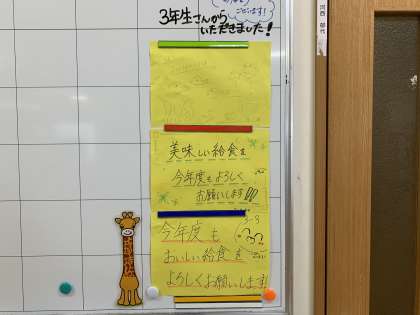 3年生さんから
いただきました!
美味しい給食を
今年度もよろしく
お願いします!!!
今年度も
おいしい給食を
よろしくお願いします!